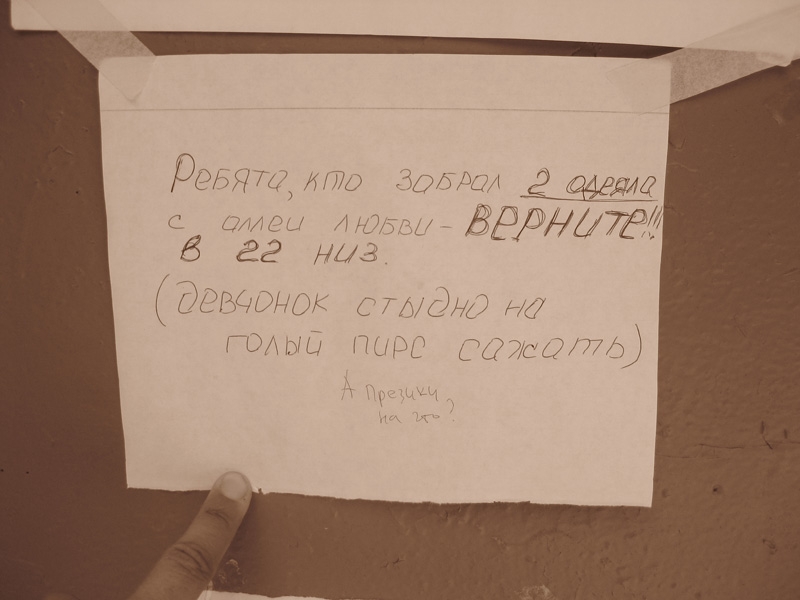 Ребята, кто забрал 2 одеяла
с аллеи любви - ВЕРНИТЕ!!!
В 22 НИЗ.
(девчонок стыдно на
голый пирс сажать)
А презики,
на что?